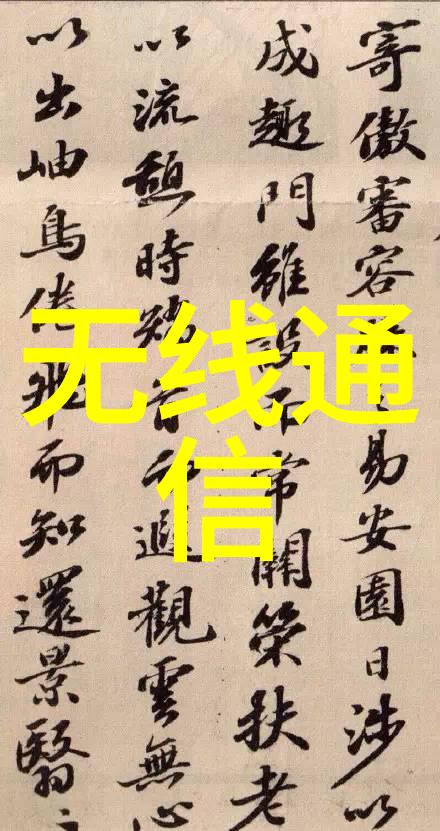 寄傲審容易安園日涉以
成趣門雖設而常關策扶老
以流憩時矯首而遐觀雲無心
以出岫鳥倦飛而知還景翳
无线通
信